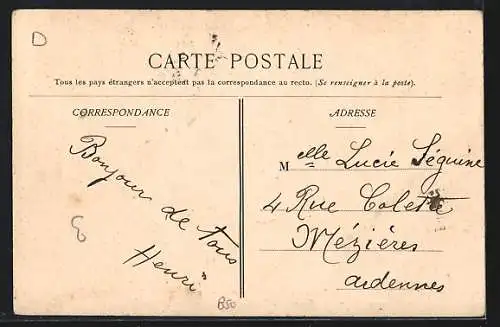 D
CARTE POSTALE
Tous les pays étrangers n'acceptent pas la correspondance au recto. (Se renseigner à la poste).
CORRESPONDANCE
Bonjour de tous
Henri
ADRESSE
Melle Lucie Séguine
4 Rue Colette
Mézières
Ardennes
B50